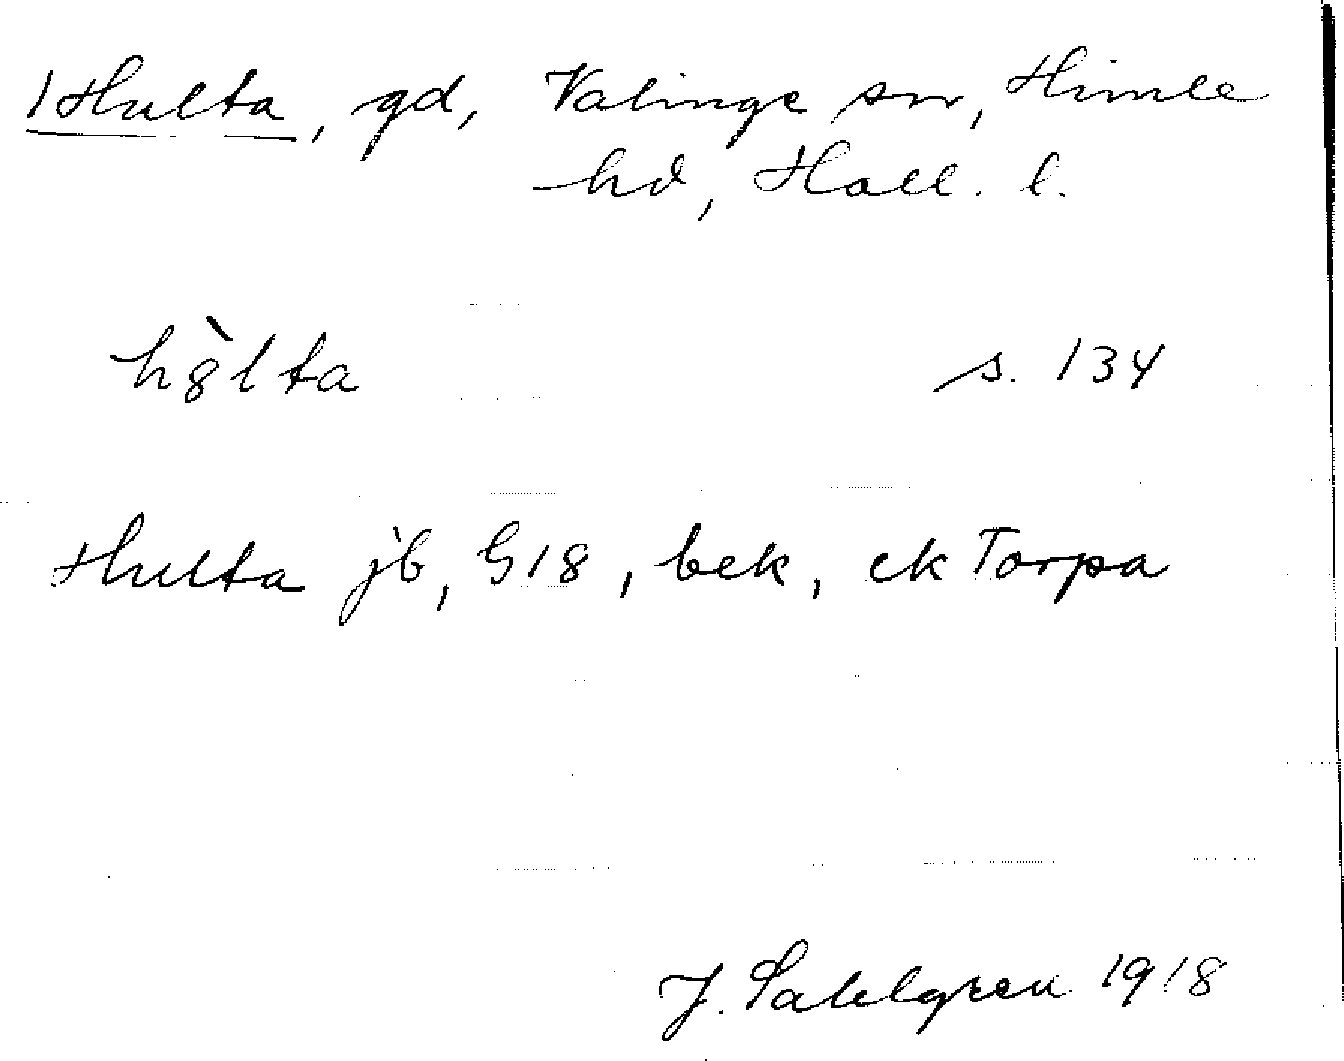 Hulta, gd, Valinge sn, Himle
hd, Hall. l.
hȣ̀lta s. 134
Hulta jb, G18, bek, ek Torpa
J. Sahlgren 1918